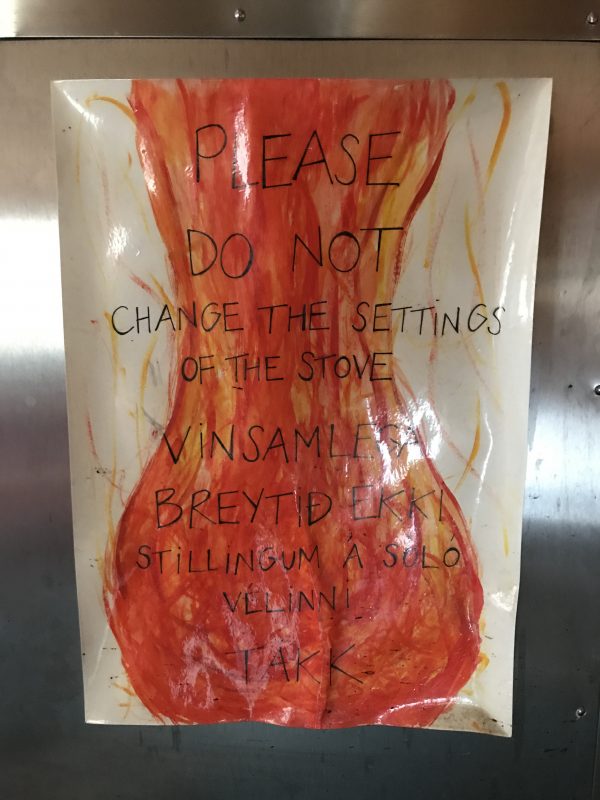 PLEASE
DO NOT
CHANGE THE SETTINGS
OF THE STOVE
VINSAMLEGA
BREYTIÐ EKKI
STILLINGUM Á SOLÓ
VÉLINNI
TAKK